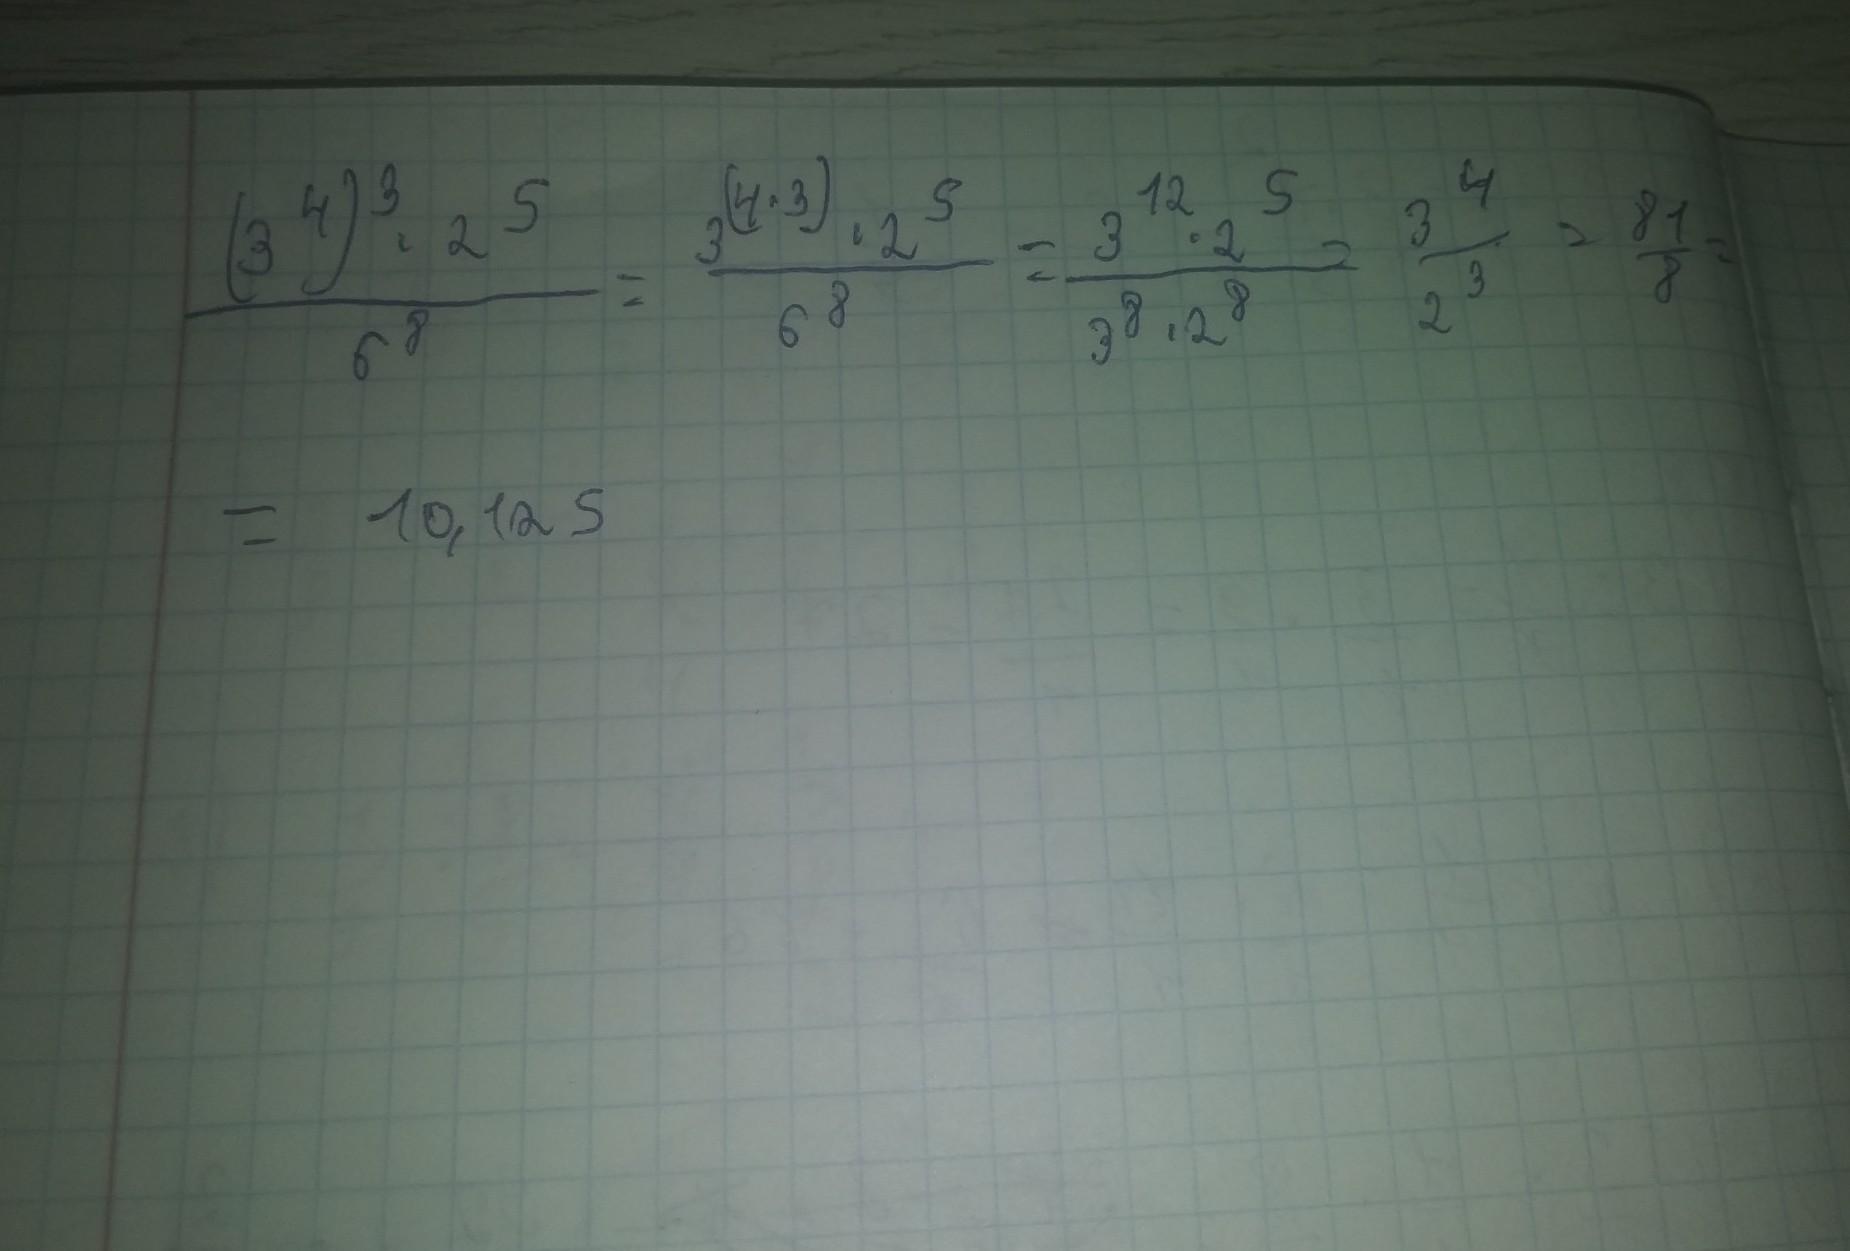 (3^4)^3 · 2^5 / 6^8 = 3^(4·3) · 2^5 / 6^8 = 3^12 · 2^5 / 3^8 · 2^8 = 3^4 / 2^3 = 81/8 =
= 10,125